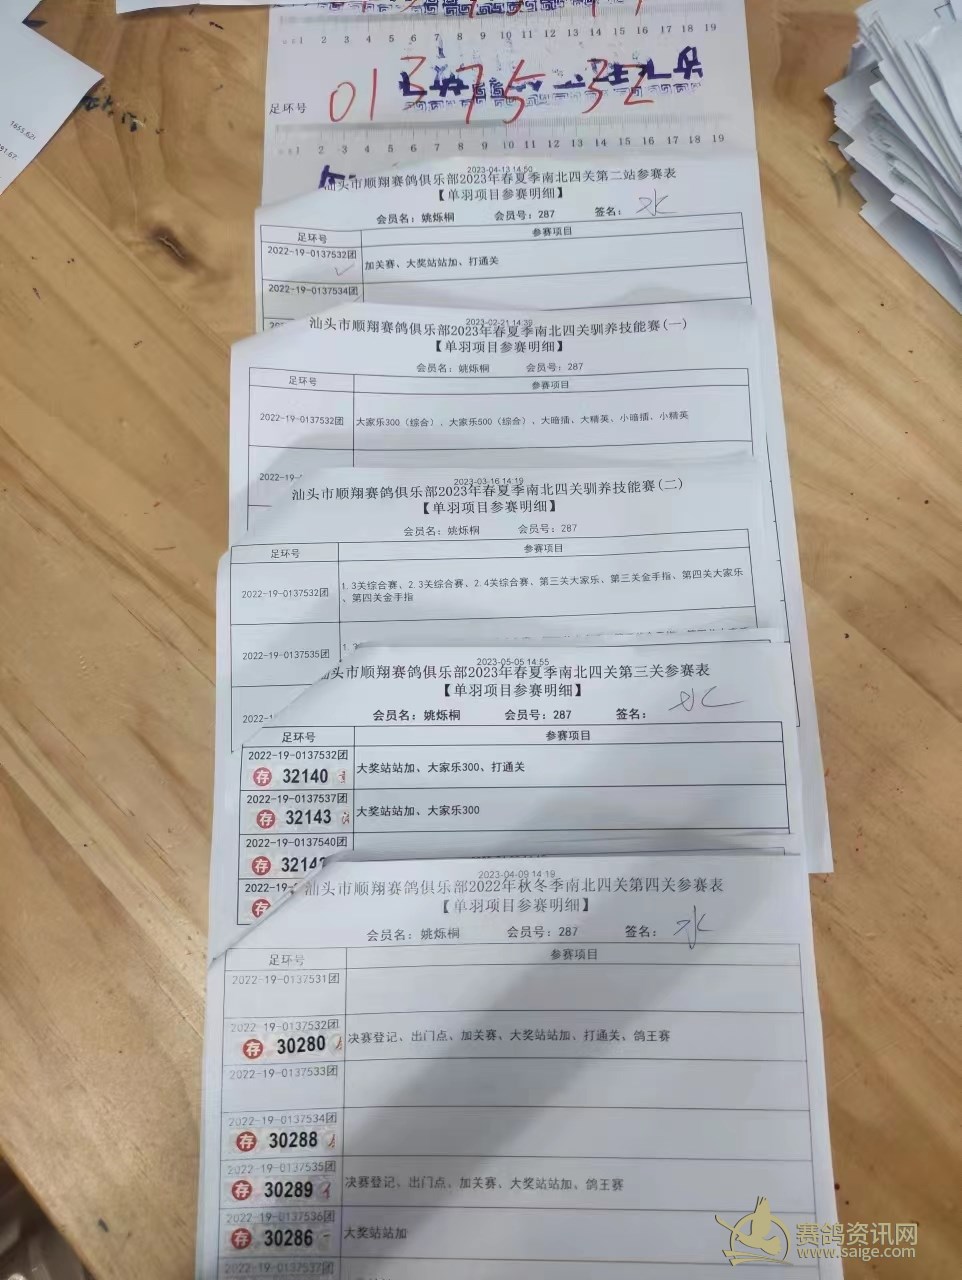 1 2 3 4 5 6 7 8 9 10 11 12 13 14 15 16 17 18 19
足环号 0137532
1 2 3 4 5 6 7 8 9 10 11 12 13 14 15 16 17 18 19
2023-04-13 14:50
汕头市顺翔赛鸽俱乐部2023年春夏季南北四关第二站参赛表
【单羽项目参赛明细】
会员名：姚烁桐 会员号：287 签名：水
足环号 参赛项目
2022-19-0137532团 加关赛、大奖站站加、打通关
2022-19-0137534团
2023-02-21 14:39
汕头市顺翔赛鸽俱乐部2023年春夏季南北四关驯养技能赛(一)
【单羽项目参赛明细】
会员名：姚烁桐 会员号：287
足环号 参赛项目
2022-19-0137532团 大家乐300（综合）、大家乐500（综合）、大暗插、大精英、小暗插、小精英
2022-19-
2023-03-16 14:19
汕头市顺翔赛鸽俱乐部2023年春夏季南北四关驯养技能赛(二)
【单羽项目参赛明细】
会员名：姚烁桐 会员号：287
足环号 参赛项目
2022-19-0137532团 1.3关综合赛、2.3关综合赛、2.4关综合赛、第三关大家乐、第三关金手指、第四关大家乐
、第四关金手指
2022-19-0137535团
2022-19
2023-05-05 14:55
汕头市顺翔赛鸽俱乐部2023年春夏季南北四关第三关参赛表
【单羽项目参赛明细】
会员名：姚烁桐 会员号：287 签名：水
足环号 参赛项目
2022-19-0137532团
存 32140 大奖站站加、大家乐300、打通关
2022-19-0137537团
存 32143 大奖站站加、大家乐300
2022-19-0137540团
存 3214
2022-19-
存
2023-04-09 14:19
汕头市顺翔赛鸽俱乐部2022年秋冬季南北四关第四关参赛表
【单羽项目参赛明细】
会员名：姚烁桐 会员号：287 签名：水
足环号 参赛项目
2022-19-0137531团
2022-19-0137532团
存 30280 决赛登记、出门点、加关赛、大奖站站加、打通关、鸽王赛
2022-19-0137533团
2022-19-0137534团
存 30288
2022-19-0137535团
存 30289 决赛登记、出门点、加关赛、大奖站站加、鸽王赛
2022-19-0137536团
存 30286 大奖站站加
2022-19-0137537团
赛鸽资讯网
www.saige.com